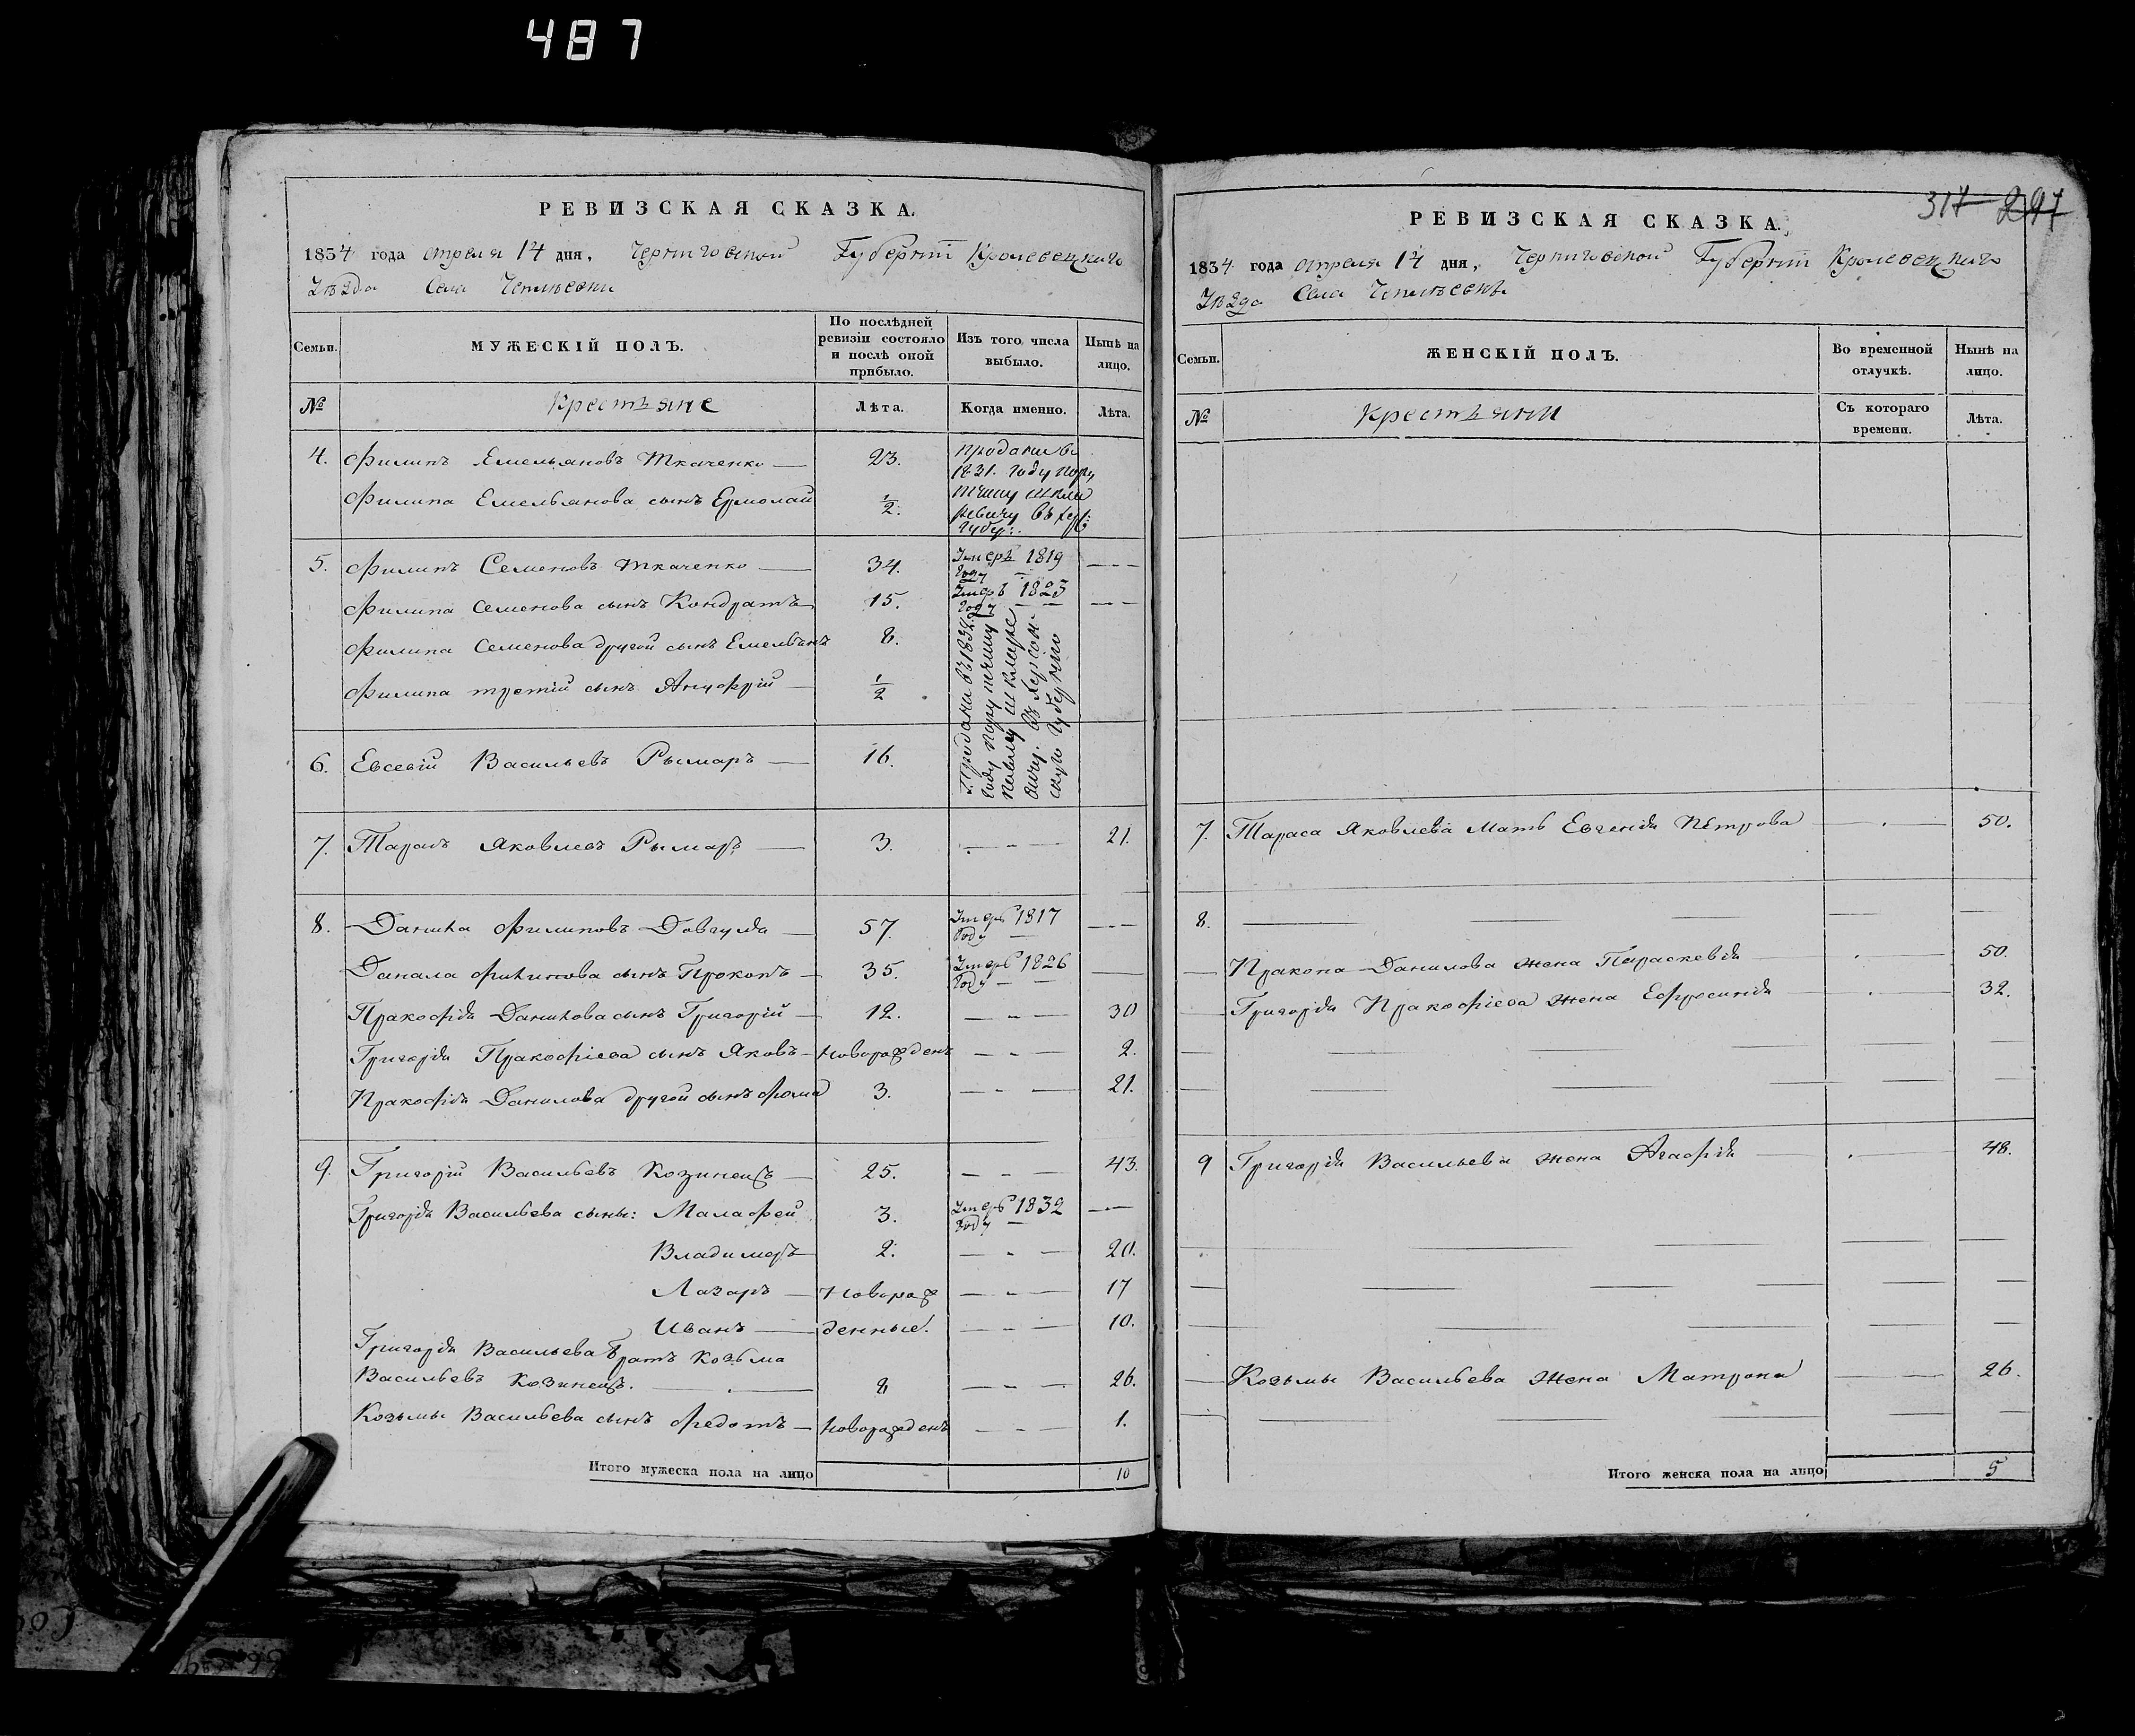 487
РЕВИЗСКАЯ СКАЗКА.
1834 года апреля 14 дня, Черниговской Губерніи Кролевецкаго
Уѣзда Села
Семьи.
МУЖЕСКІЙ ПОЛЪ.
По послѣдней ревизіи состояло и послѣ оной прибыло.
Изъ того числа выбыло.
Нынѣ на лицо.
№
Крестьяне
Лѣта.
Когда именно.
Лѣта.
4. Филипъ Емельяновъ Ткаченко — 23.
Филипа Емельянова сынъ Ермолай 1/2.
Проданы въ
1831. году пору
тчику Шкля
ревичу въ
губер:
5. Филипъ Семеновъ Ткаченко — 34. Умеръ 1819 году — - —
Филипа Семенова сынъ Кондратъ 15. Умеръ 1823 году — - —
Филипа Семенова другой сынъ Емельянъ 8.
Филипа третій сынъ 1/2
6. Евсевій Васильевъ Рымаръ — 16.
Проданы въ 1832.
году поручику
Шкляре
вичу. въ Херсон
скую губернію
7. Тарасъ Яковлевъ Рымаръ — 3. — - — 21.
8. Данила Филиповъ — 57. Умеръ 1817 году — - —
Данила Филипова сынъ Прокопъ — 35. Умеръ 1826 году — —
Пракофія Данилова сынъ Григорій — 12. — - — 30
Григорія Пракофіева сынъ Яковъ — новорожденъ — - — 2.
Пракофія Данилова другой сынъ Фома 3. — - — 21.
9. Григорій Васильевъ Козинецъ — 25. — - — 43.
Григорія Васильева сыны: Малафей 3. Умеръ 1832 году — - —
Владимеръ 2. — - — 20.
Лазаръ — новорож — - — 17
Иванъ — денные. — - — 10.
Григорія Васильева братъ Козьма
Васильевъ Козинецъ. — 8 — - — 26.
Козьмы Васильева сынъ Федотъ — новорожденъ — - — 1.
Итого мужеска пола на лицо 10
317 297
РЕВИЗСКАЯ СКАЗКА.
1834 года апреля 14 дня, Черниговской Губерніи Кролевецкаго
Уѣзда Села
Семьи.
ЖЕНСКІЙ ПОЛЪ.
Во временной отлучкѣ.
Нынѣ на лицо.
№
Крестьяни
Съ котораго времени.
Лѣта.
7. Тараса Яковлева мать Евгенія Петрова — . — 50.
8. — — — — —
Пракопа Данилова жена Параскевія — . — 50.
Григорія Пракофіева жена Ефросинія — . — 32.
9 Григорія Васильева жена Агафія — . — 48.
Козьмы Васильева жена Матрона — 26.
Итого женска пола на лицо 5